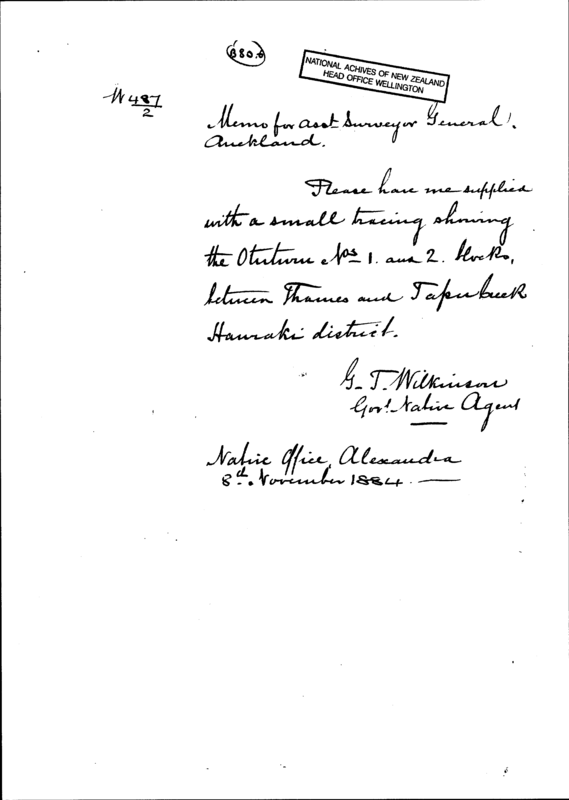 NATIONAL ACHIVES OF NEW ZEALAND
HEAD OFFICE WELLINGTON
W 487/2
Memo for asst Surveyor General.
Auckland.
Please have me supplied
with a small tracing showing
the Otuturu Nos 1. and 2. blocks,
between Thames and Tapu Creek
Hauraki district.
G. T. Wilkinson
Govt. Native Agent
Native Office, Alexandra
8th. November 1884.